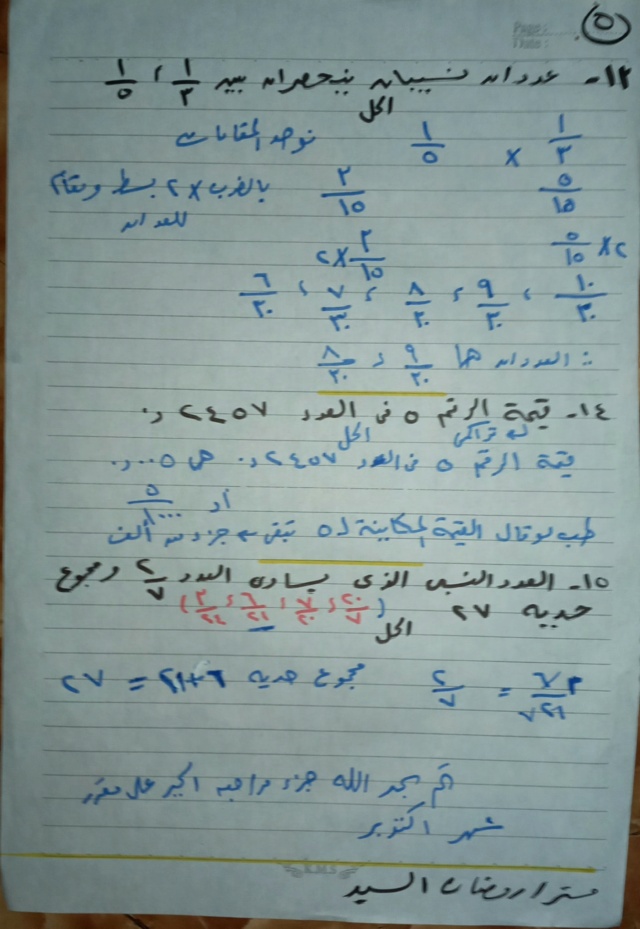 ٥
Page:
Date:
١٣- عددان نسبيان ينحصران بين ١/٣ ، ١/٥
الحل
١/٣ × ١/٥ نوحد المقامات
٥/١٥ ٣/١٥ بالضرب × ٢ بسط ومقام
للعددان
٢× ٥/١٥ ٣/١٥ ×٢
١٠/٣٠ ، ٩/٣٠ ، ٨/٣٠ ، ٧/٣٠ ، ٦/٣٠
∴ العددان هما ٩/٣٠ ، ٨/٣٠
١٤- قيمة الرقم ٥ فى العدد ٢٤٥٧ و٠
الحل
قيمة الرقم ٥ فى العدد ٢٤٥٧ و٠ هى ٠٠٥ و٠
أو ٥/١٠٠٠
طب لو قال القيمة المكانية لـ ٥ تبقى جزء من ألف
١٥- العدد النسبى الذى يساوى العدد ٢/٧ ومجموع
حديه ٢٧ (٢٠/٧ ، ٧/٢٠ ، ٦/٢١ ، ٣/٢٤)
الحل
٦/٢١ = ٢/٧ مجموع حديه ٦+٢١ = ٢٧
تم بحمد الله جزء مراجعة الجبر على مقرر
شهر اكتوبر
مستر / رمضان السيد